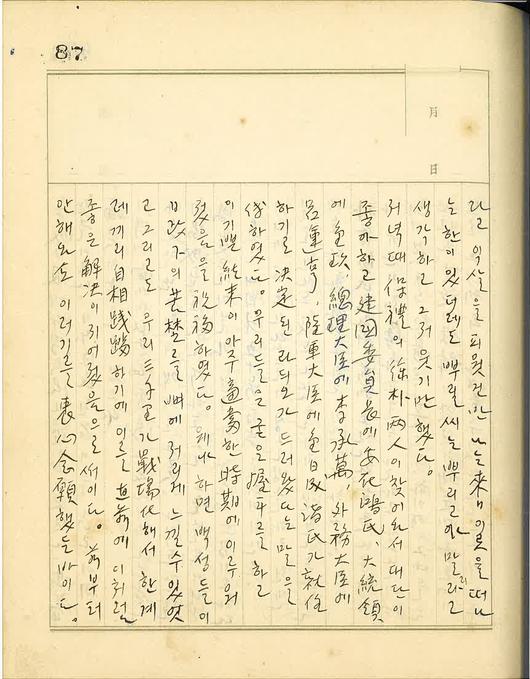 87
月
日
라고 익살을 피웟건만 나는 來日 이곳을 떠나
는 한이 있더래도 뿌릴 씨는 뿌리고야 말리라고
생각하고 그저 웃기만 했다.
저녁 때 保禮의 徐朴 兩人이 찾어와서 대단이
좋아하고 建國委員長에 安在鴻氏, 大統領
에 金玖, 總理大臣에 李承萬, 外務大臣에
呂運亨, 陸軍大臣에 金日成 諸氏가 就任
하기로 決定된 라듸오가 드러왔다는 말을
傳하였다. 우리들은 굳은 握手를 하고
이 기쁠 結末이 아주 適當한 時期에 이루워
졌음을 祝福하였다. 왜냐하면 백성들이
日政下의 苦楚를 뼈에 저리게 느낄 수 있엇
고 그리고도 우리 三千里가 戰場化해서 한 겨
레끼리 自相踐踏하기에 이를 直前에 이처럼
좋은 解決이 지어졌음으로써이다. 前부터
안해와도 이러기를 衷心 念願했든 바이다.